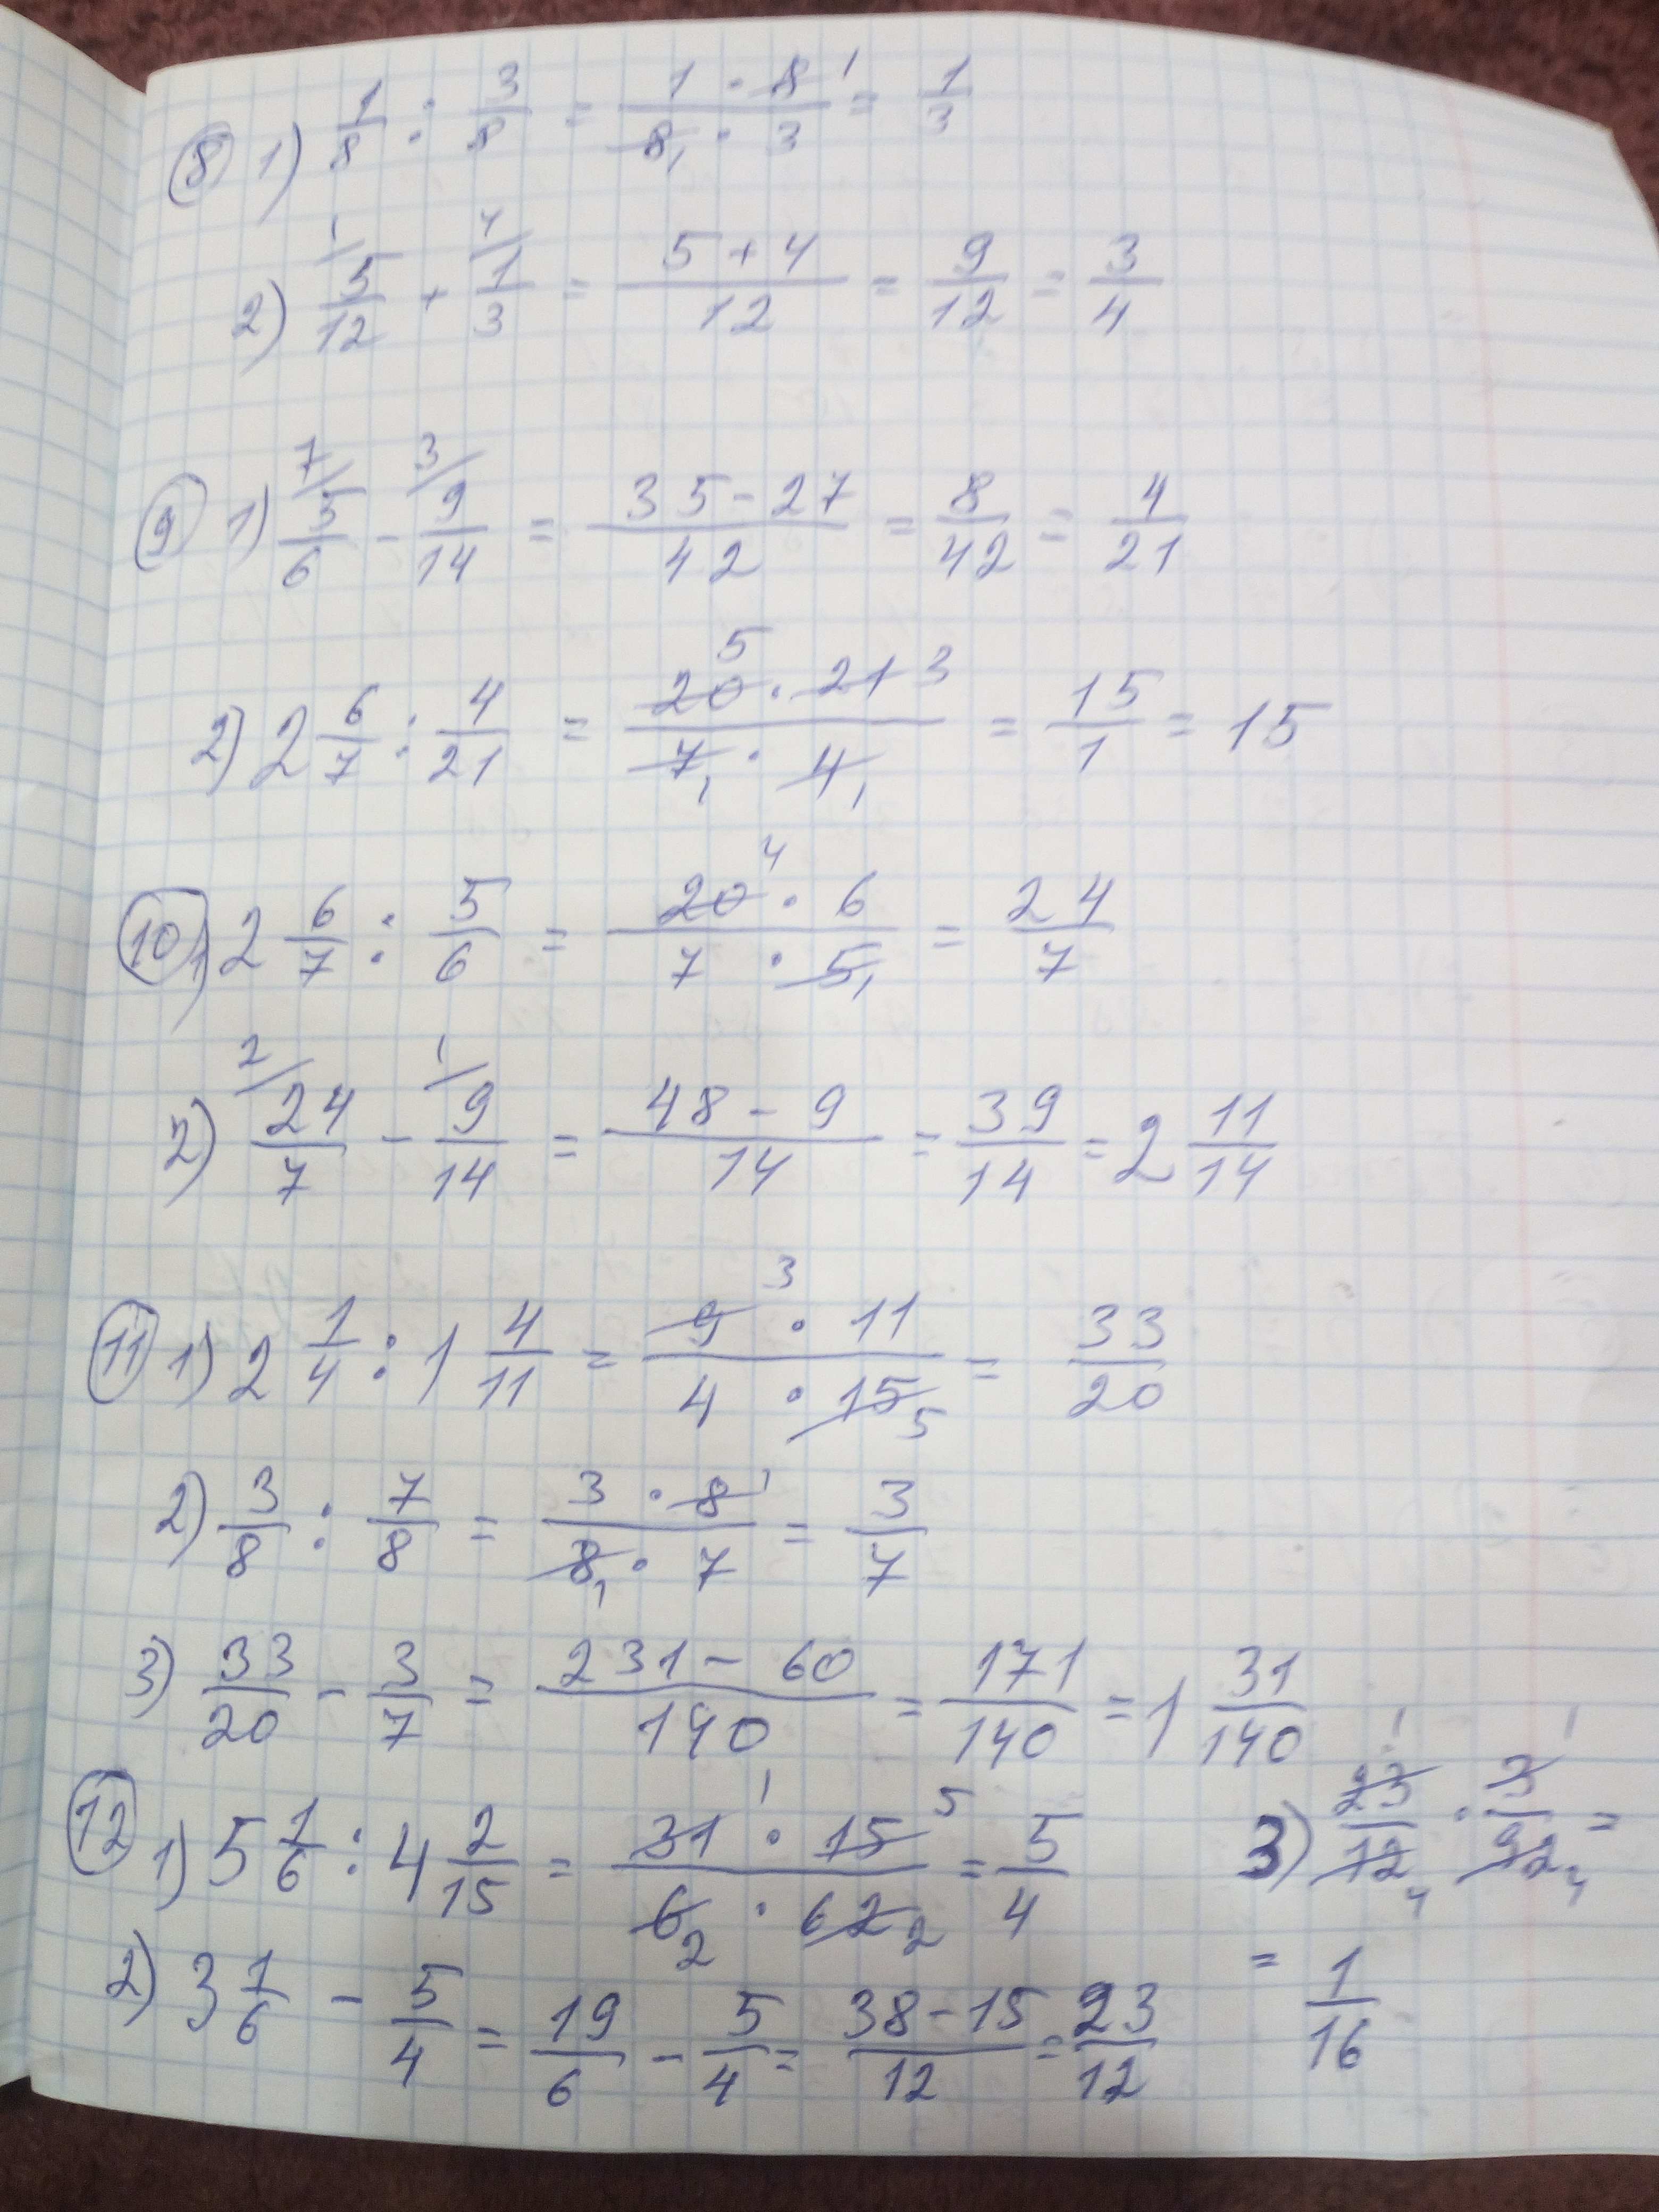 8 1) 1/8 : 3/8 = 1 · 8 1 / 8 1 · 3 = 1/3
2) 1/ 5/12 + 4/ 1/3 = 5+4 / 12 = 9/12 = 3/4
9 1) 7/ 5/6 - 3/ 9/14 = 35-27 / 42 = 8/42 = 4/21
2) 2 6/7 : 4/21 = 20 5 · 21 3 / 7 1 · 4 1 = 15/1 = 15
10 1) 2 6/7 : 5/6 = 20 4 · 6 / 7 · 5 1 = 24/7
2) 2/ 24/7 - 1/ 9/14 = 48-9 / 14 = 39/14 = 2 11/14
11 1) 2 1/4 : 1 4/11 = 9 3 · 11 / 4 · 15 5 = 33/20
2) 3/8 : 7/8 = 3 · 8 1 / 8 1 · 7 = 3/7
3) 33/20 - 3/7 = 231-60 / 140 = 171/140 = 1 31/140
12 1) 5 1/6 : 4 2/15 = 31 1 · 15 5 / 6 2 · 62 2 = 5/4
2) 3 1/6 - 5/4 = 19/6 - 5/4 = 38-15 / 12 = 23/12
3) 23 1 / 12 4 · 3 1 / 92 4 =
= 1/16